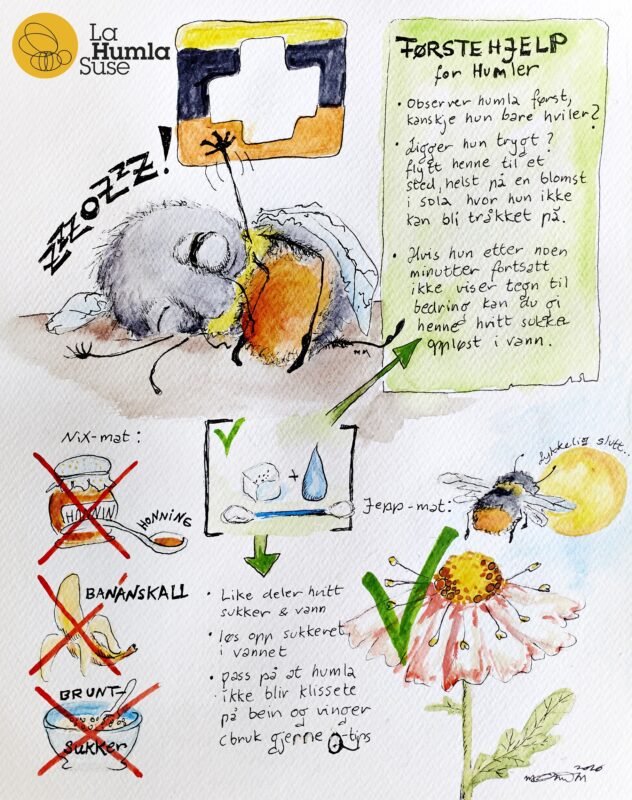 La
Humla
Suse
ZZZOZZZ!
FØRSTEHJELP
for Humler
• Observer humla først,
kanskje hun bare hviler?
• Ligger hun trygt?
flytt henne til et
sted, helst på en blomst
i sola hvor hun ikke
kan bli tråkket på.
• Hvis hun etter noen
minutter fortsatt
ikke viser tegn til
bedring kan du gi
henne hvitt sukker
oppløst i vann.
MM
Nix-mat:
HONNIN
HONNING
BANANSKALL
BRUNT-
Sukker
+
• Like deler hvitt
sukker & vann
• løs opp sukkeret
i vannet
• pass på at humla
ikke blir klissete
på bein og vinger
(bruk gjerne Q-tips
Jepp-mat:
Lykkelig slutt..
2020